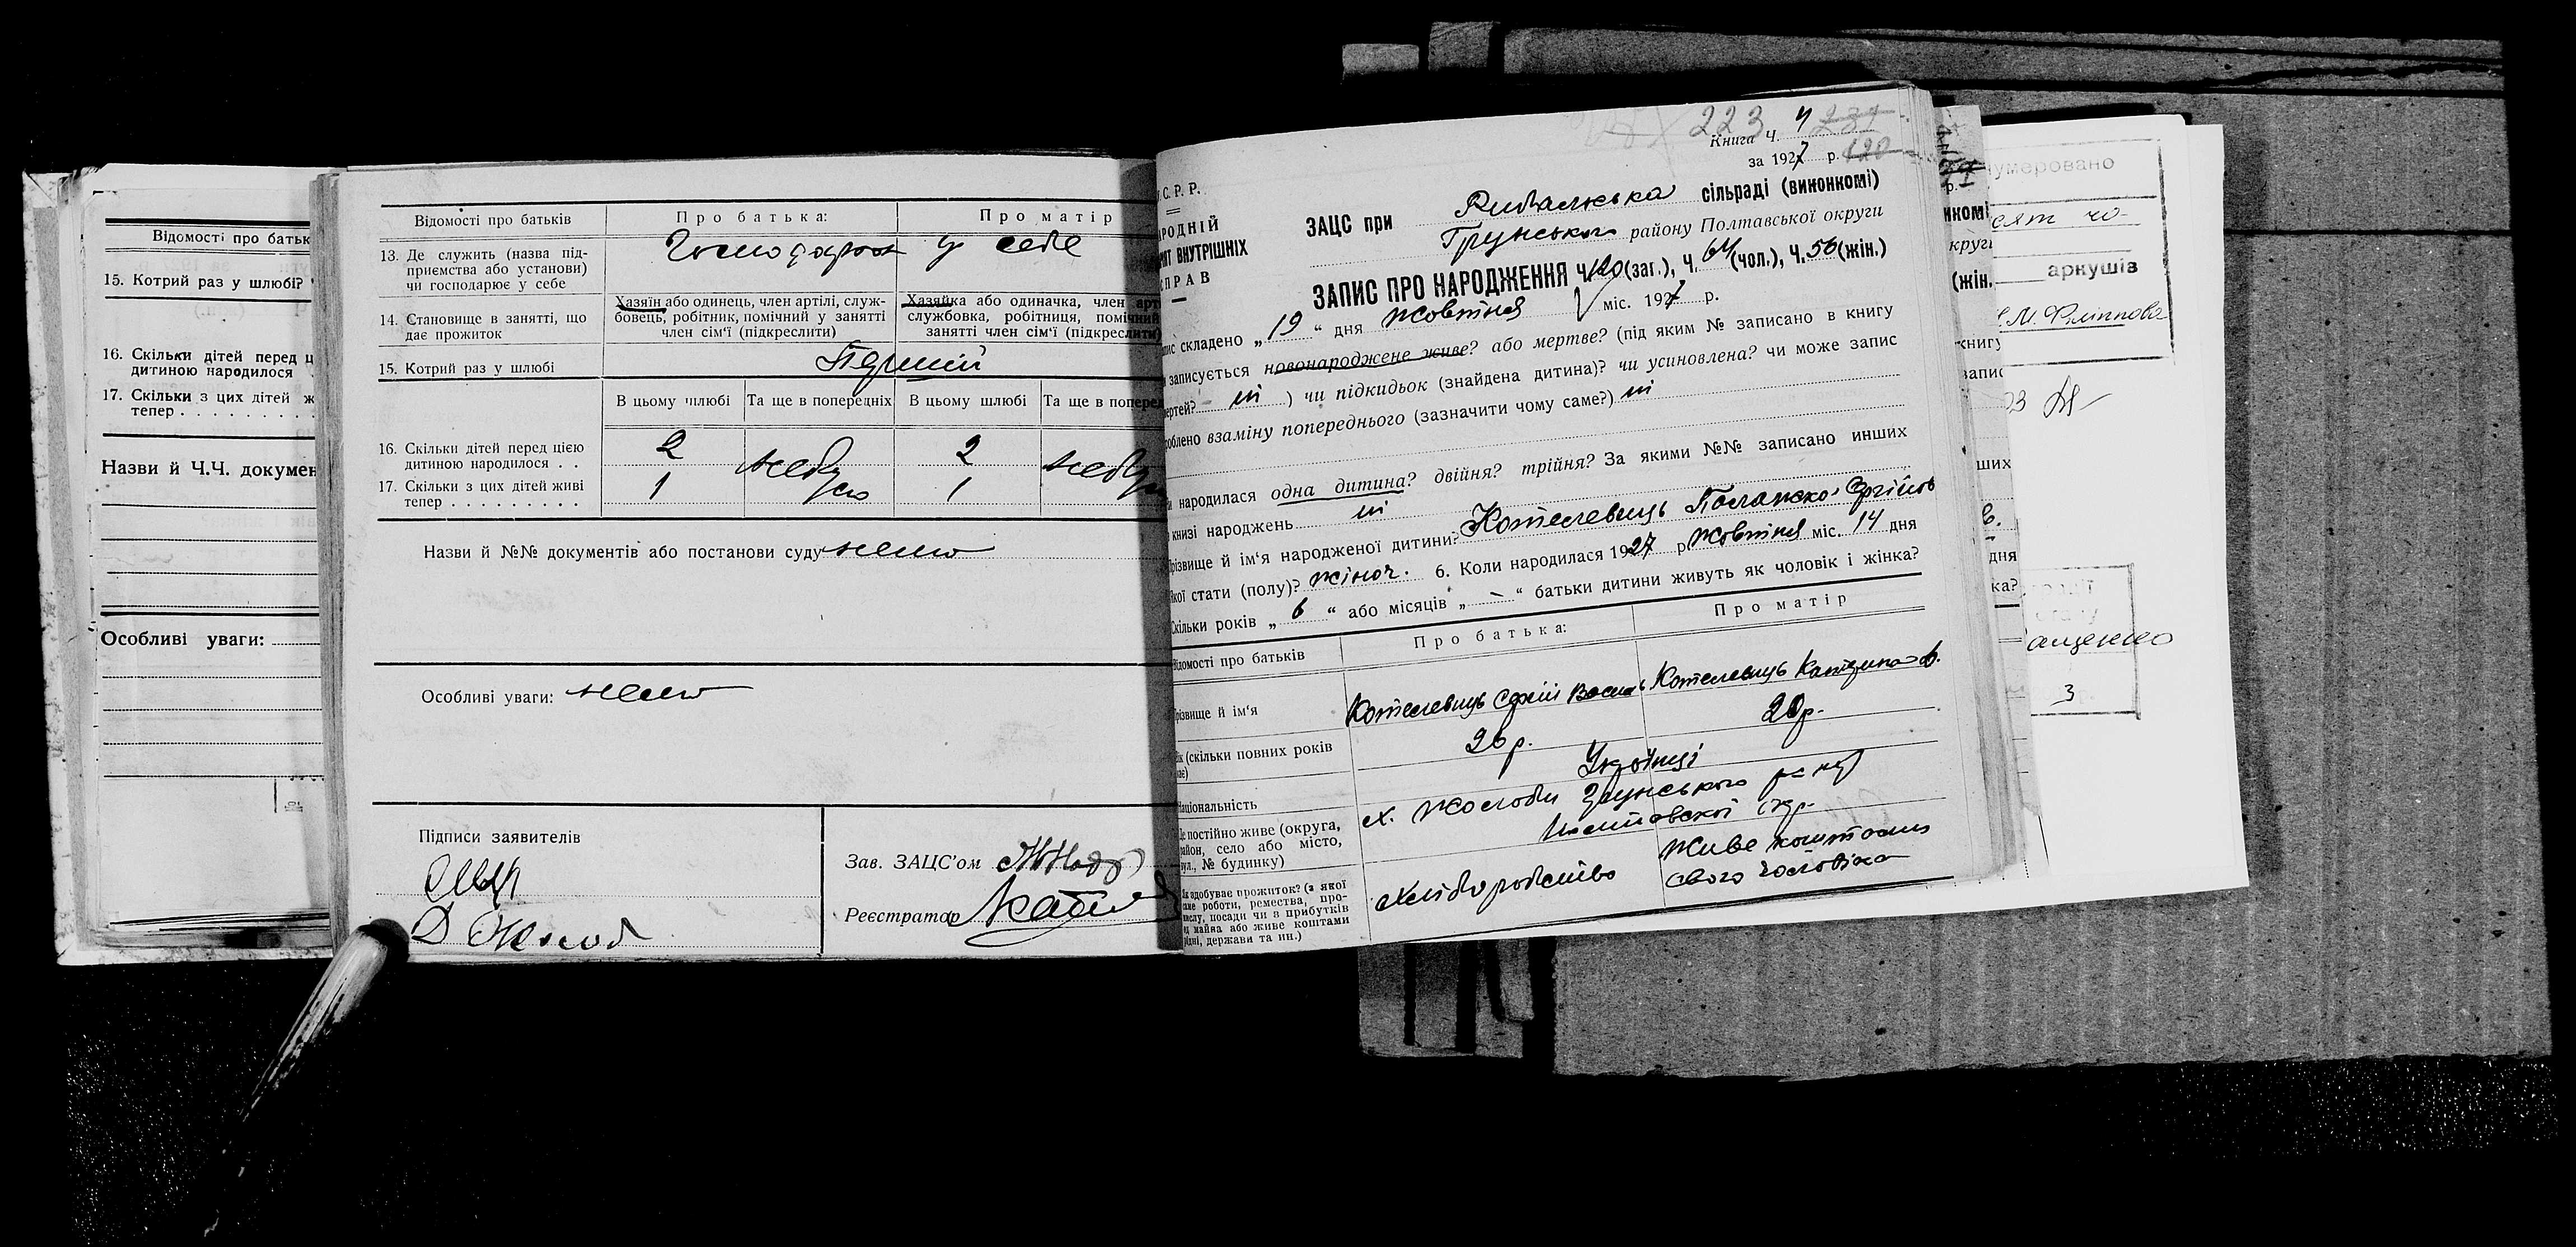 Відомості про батьк
15. Котрий раз у шлюбі?
16. Скільки дітей перед ц
дитиною народилося
17. Скільки з цих дітей ж
тепер . . . . . . . . .
Назви й Ч.Ч. докумен
Особливі уваги:
Відомості про батьків
Про батька:
Про матір
13. Де служить (назва під-
приємства або установи)
чи господарює у себе
Господарює у себе
14. Становище в занятті, що
дає прожиток
Хазяїн або одинець, член артілі, служ-
бовець, робітник, помічний у занятті
член сім'ї (підкреслити)
Хазяйка або одиначка, член арт
службовка, робітниця, помічний
занятті член сім'ї (підкреслити)
15. Котрий раз у шлюбі
Перший
В цьому шлюбі
Та ще в попередніх
В цьому шлюбі
Та ще в поперед
16. Скільки дітей перед цією
дитиною народилося . .
2
2
17. Скільки з цих дітей живі
тепер . . . . . . . . .
1
небуло
1
Назви й №№ документів або постанови суду нема
Особливі уваги: нема
Підписи заявителів
Зав. ЗАЦС'ом
Реєстратор
223 4 231
Книга Ч.
за 1927 р. 120
С. Р. Р.
РОДНІЙ
РІЯТ ВНУТРІШНІХ
ПРАВ
ЗАЦС при Рибальська сільраді (виконкомі)
Грунського району Полтавської округи
ЗАПИС ПРО НАРОДЖЕННЯ Ч.120 (заг.), Ч. 64 (чол.), Ч. 56 (жін.)
пис складено „19" дня жовтня міс. 1927 р.
записується новонароджене живе? або мертве? (під яким № записано в книгу
ертей? ні ) чи підкидьок (знайдена дитина)? чи усиновлена? чи може запис
облено взаміну попереднього (зазначити чому саме?) ні
и народилася одна дитина? двійня? трійня? За якими №№ записано инших
книзі народжень ні
різвище й ім'я народженої дитини? Котелевець
якої стати (полу)? жіноч. 6. Коли народилася 1927 р. жовтня міс. 14 дня
Скільки років „6" або місяців „–" батьки дитини живуть як чоловік і жінка?
Відомості про батьків
Про батька:
Про матір
різвище й ім'я
Котелевець Сергій Васильв
Котелевець Катерина
ік (скільки повних років
має)
26 р.
20 р.
Національність
Українці
Де постійно живе (округа,
район, село або місто,
вул., № будинку)
х. Жолоби Грунського р-ну
Полтавської окр.
Як здобуває прожиток? (з якої
саме роботи, ремества, про-
мислу, посади чи з прибутків
від майна або живе коштами
рідні, держави та ин.)
хліборобство
живе коштами
свого чоловіка
умеровано
аркушів